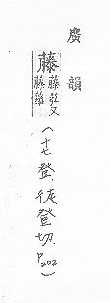 廣韻
藤
藤苰又
藤蘿
(十七登,徒登切,P202)